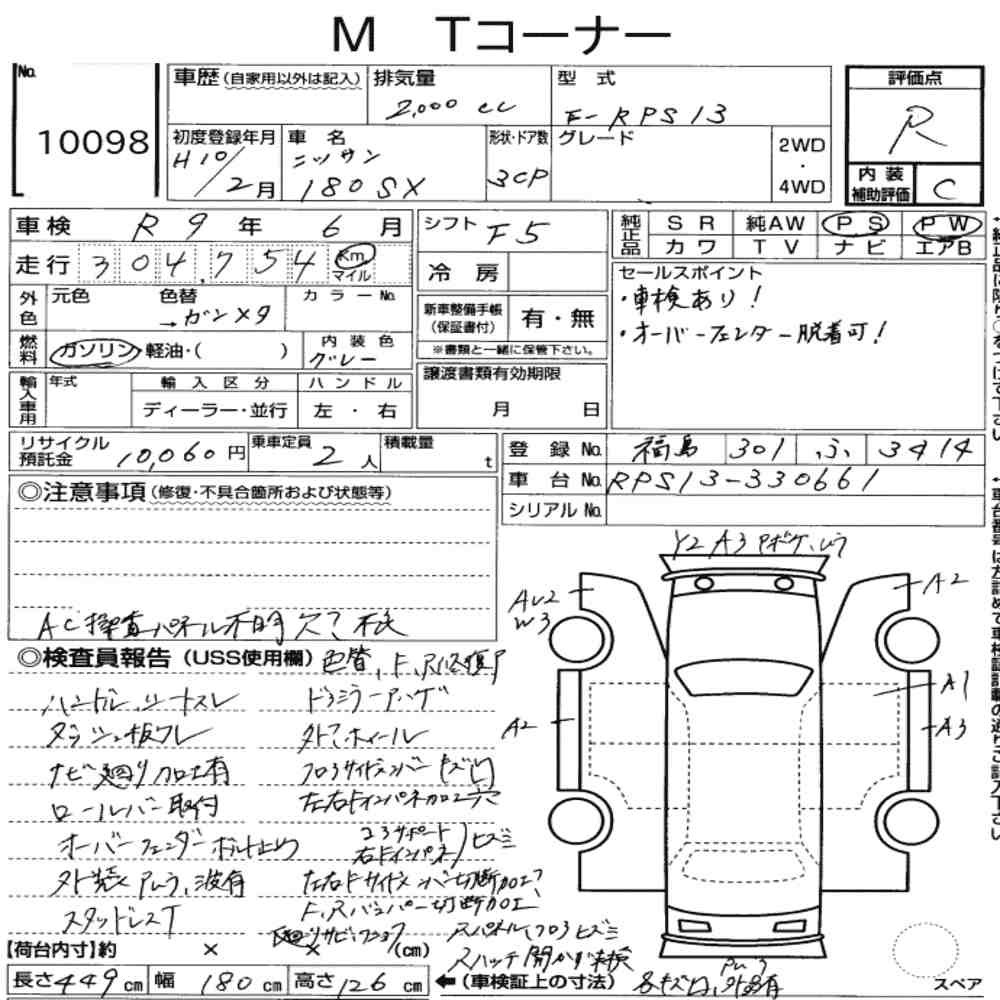 M Tコーナー
No. 10098
車歴(自家用以外は記入) 排気量 2,000 cc 型式 E-RPS13
評価点 R
初度登録年月 H10/2月 車名 ニッサン 180SX 形状・ドア数 3CP グレード 2WD・4WD
内装補助評価 C
車検 R9年 6月
走行 304,754 Km マイル
シフト F5
冷房
純正品 SR 純AW PS PW
カワ TV ナビ エアB
外色 元色 色替 →ガンメタ カラーNo.
新車整備手帳(保証書付) 有・無
※書類と一緒に保管下さい。
セールスポイント
・車検あり!
・オーバーフェンダー脱着可!
燃料 ガソリン・軽油・( ) 内装色 グレー
輸入車用 年式 輸入区分 ハンドル
ディーラー・並行 左・右
譲渡書類有効期限
月 日
リサイクル預託金 10,060円 乗車定員 2人 積載量 t
登録No. 福島 301 ふ 3414
車台No. RPS13-330661
シリアルNo.
◎注意事項(修復・不具合箇所および状態等)
AC操査パネル不明欠?
◎検査員報告(USS使用欄) 色替、F、R修復ア
ハンドル、シートスレ
ドラミラーアハゲ
ダッシュ板ワレ
外アホイール
ナビ廻り加工有
フロアサイドメンバーキズ凹
ロールバー取付
左右Fインパネ加工穴
オーバーフェンダーボルト止め
コアサポート 右Fインパネ)ヒズミ
外装Aムラ、波有
左右Fサイドメンバー切断加工?
スタッドレスT
F、Rバンパー切断加工、
廻りサビ
Rパネル、フロアヒズミ
Rハッチ開かず未検
各キズ凹
Y2 A3 Pボケ、ムラ
AU2
W3
A2
A2
A1
A3
PU3
【荷台内寸】約 × × (cm)
長さ449cm 幅180cm 高さ126cm ←(車検証上の寸法)
スペア